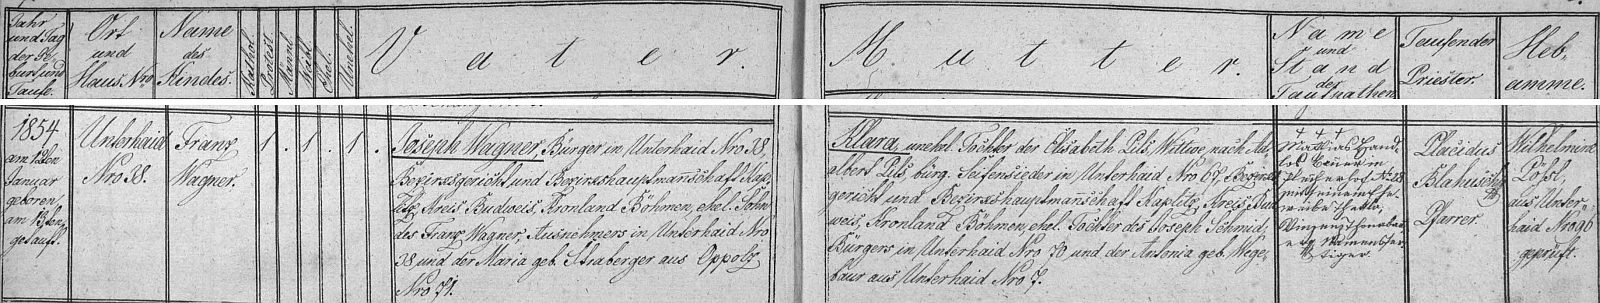 Jahr und Tag der Geburt und Taufe.
Ort und Haus Nro
Name des Kindes.
Kathol.
Protest.
Männl.
Weibl.
Ehel.
Unehel.
Vater.
Mutter.
Name und Stand der Taufpathen
Taufender Priester.
Hebamme.
1854
am 12ten
Januar
geboren,
am 12ten
getauft.
Unterhaid
Nro 38.
Franz
Wagner.
1. 1. 1.
Joseph Wagner, Bürger in Unterhaid Nro 38
Bezirksgericht und Bezirkshauptmanschaft Kap-
litz, Kreis Budweis, Kronland Böhmen, ehel. Sohn
des Franz Wagner, Ausnehmers in Unterhaid Nro
38 und der Maria geb. Straberger aus Oppolz
Nro 71.
Klara, unehel. Tochter der Elisabeth Pils, Witwe nach Adalbert
Pils, bürg. Seifensieder in Unterhaid Nro 67, Bezirks-
gericht und Bezirkshauptmanschaft Kaplitz, Kreis Bud-
weis, Kronland Böhmen, ehel. Tochter des Joseph Schmid,
Bürgers in Unterhaid Nro 70 und der Antonia geb. Wege-
baur aus Unterhaid Nro 7.
+ + +
Mathias
Placidus
Blahusch
Pfarrer.
Wilhelmine
Pößl,
aus Unter-
haid Nro 96
geprüft.